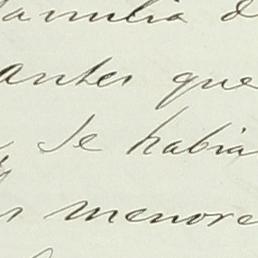 familia d
antes que
Se habia
s menore